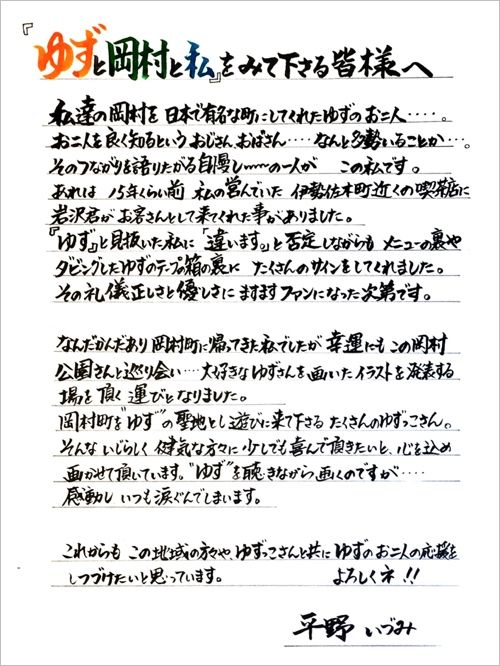 『ゆずと岡村と私』をみて下さる皆様へ
私達の岡村を日本で有名な町にしてくれたゆずのお二人・・・・・。
お二人を良く知るというおじさん、おばさん・・・・なんと多勢いることか・・・。
そのつながりを語りたがる自慢しぃ〜〜の一人が この私です。
あれは 15年くらい前 私の営んでいた 伊勢佐木町近くの喫茶店に
岩沢君がお客さんとして来てくれた事がありました。
『ゆず』と見抜いた私に「違います。」と否定しながらも メニューの裏や
ダビングしたゆずのテープの箱の裏に たくさんのサインをしてくれました。
その礼儀正しさと優しさに ますますファンになった次第です。
なんだかんだあり 岡村町に帰ってきた私でしたが 幸運にもこの岡村
公園さんと巡り会い・・・大好きなゆずさんを画いたイラストを発表する
場を頂く運びとなりました。
岡村町を"ゆず"の聖地とし遊びに来て下さる たくさんのゆずっこさん。
そんな いじらしく 健気な方々に 少しでも喜んで頂きたいと、心を込め
画かせて頂いています。"ゆず"を聴きながら画くのですが・・・・
感動し いつも涙ぐんでしまいます。
これからも この地域の方々や、ゆずっこさんと共に ゆずのお二人の応援を
しつづけたいと思っています。 よろしくネ!!
平野 いづみ